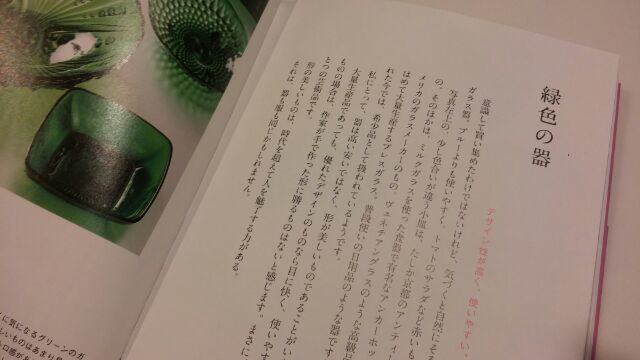 緑色の器
デザイン性が高く、使いやすい。
意識して買い集めたわけではないけれど、気づくと自然にそろ
ガラス器。ブルーよりも使いやすく、トマトのサラダなど赤いも
写真左上の、少し色合いが違う小皿は、たしか京都のアンティ
の。そのほかは、ミルクガラスを使った食器で有名なアンカーホッ
メリカのガラスメーカーのもの。ヴェネチアングラスのような高級品
はめて大量生産するプレスガラス。普段使いの日用品のような器です
れた今では、希少品として扱われているようです。
私にとって、器は高い安いではなく、形が美しいものであることがい
大量生産品であっても、優れたデザインのものなら目に快く、使いやす
ものの場合は、作家が手で作った形に勝るものはないと感じます。まさに
とつの芸術品です。
形の美しいものは、時代を超えて人を魅了する力がある。
それは、器も服も同じかもしれません。
に気になるグリーンのガ
しいものはあまり見